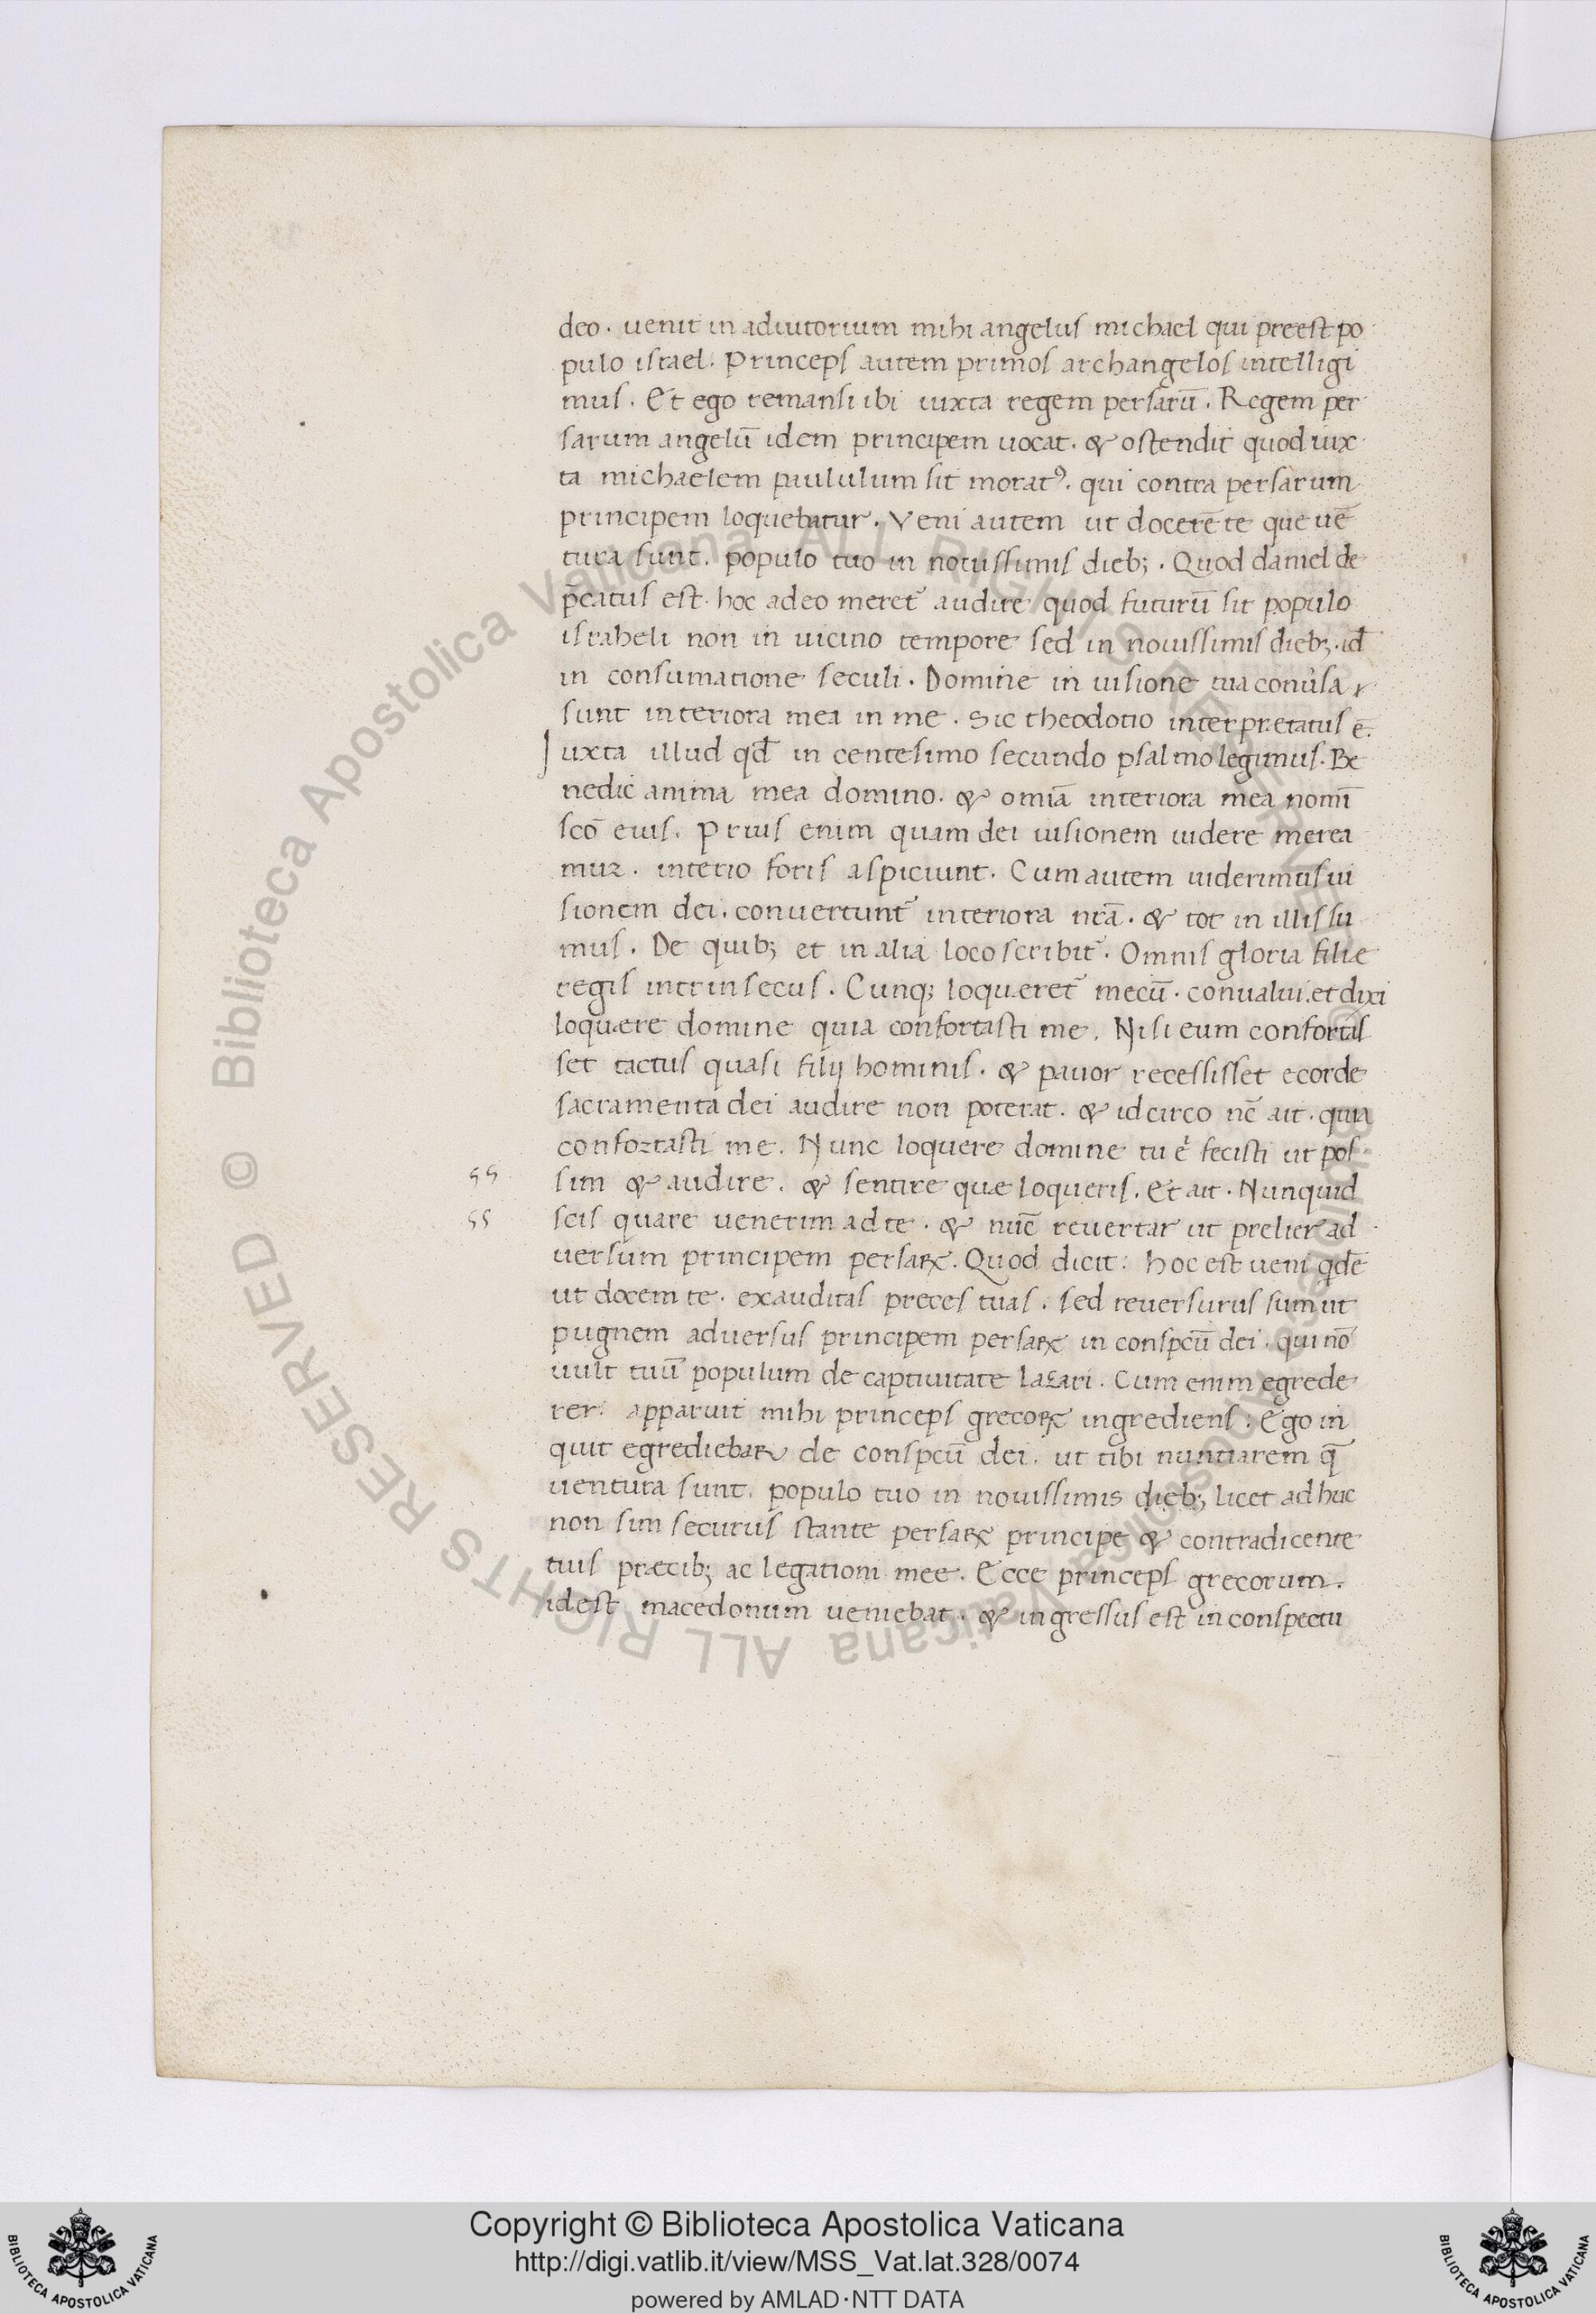 deo · uenit in adiutorium mihi angelus michael qui preest po
pulo israel. Princeps autem primos archangelos intelligi
mus. Et ego remansi ibi iuxta regem persarū. Regem per
sarum angelū idem principem uocat. & ostendit quod iux
ta michaelem paululum sit moratꝰ. qui contra persarum
principem loquebatur. Veni autem ut docerē te que uē
tura sunt. populo tuo in nouissimis dieb;. Quod daniel de
p̄catus est. hoc adeo meret᷑ audire quod futurū sit populo
israheli non in uicino tempore sed in nouissimis dieb;. id̄
in consumatione seculi. Domine in uisione tua conu̓sa
sunt interiora mea in me. Sic theodotio interpretatus ē.
Iuxta illud qd̄ in centesimo secundo psalmo legimus. Be
nedic anima mea domino. & omīa interiora mea nomī
scō eius. Prius enim quam dei uisionem uidere merea
mur. interio foris aspiciunt. Cum autem uiderimus ui
sionem dei. conuertunt᷑ interiora nr̄a. & tot in illis su
mus. De quib; et in alia loco scribit᷑. Omnis gloria filie
regis intrinsecus. Cunq; loqueret᷑ mecū. conualui. et dixi
loquere domine quia confortasti me. Nisi eum confortas
set tactus quasi filij hominis. & pauor recessisset ecorde
sacramenta dei audire non poterat. & idcirco nc̄ ait. quia
confortasti me. Nunc loquere domine tu e̓ fecisti ut pos
sim & audire. & sentire quæ loqueris. Et ait. Nunquid
scis quare uenerim ad te. & nūc reuertar ut prelier ad
uersum principem persaꝝ. Quod dicit: hoc est ueni qd̄e
ut docem te. exauditas preces tuas. sed reuersurus sum ut
pugnem aduersus principem persaꝝ in conspcū dei. qui nō
uult tuū populum de captiuitate laxari. Cum enim egrede
rer: apparuit mihi princeps grecoꝝ ingrediens. Ego in
quit egrediebar de conspcū dei. ut tibi nuntiarem q̄
uentura sunt. populo tuo in nouissimis dieb; licet ad huc
non sim securus stante persaꝝ principe & contradicente
tuis præcib; ac legationi mee. Ecce princeps grecorum.
idest macedonum ueniebat. & ingressus est in conspectu
Biblioteca Apostolica Vaticana ALL RIGHTS RESERVED ©
Copyright © Biblioteca Apostolica Vaticana
http://digi.vatlib.it/view/MSS_Vat.lat.328/0074
powered by AMLAD·NTT DATA
BIBLIOTECA APOSTOLICA VATICANA
BIBLIOTECA APOSTOLICA VATICANA